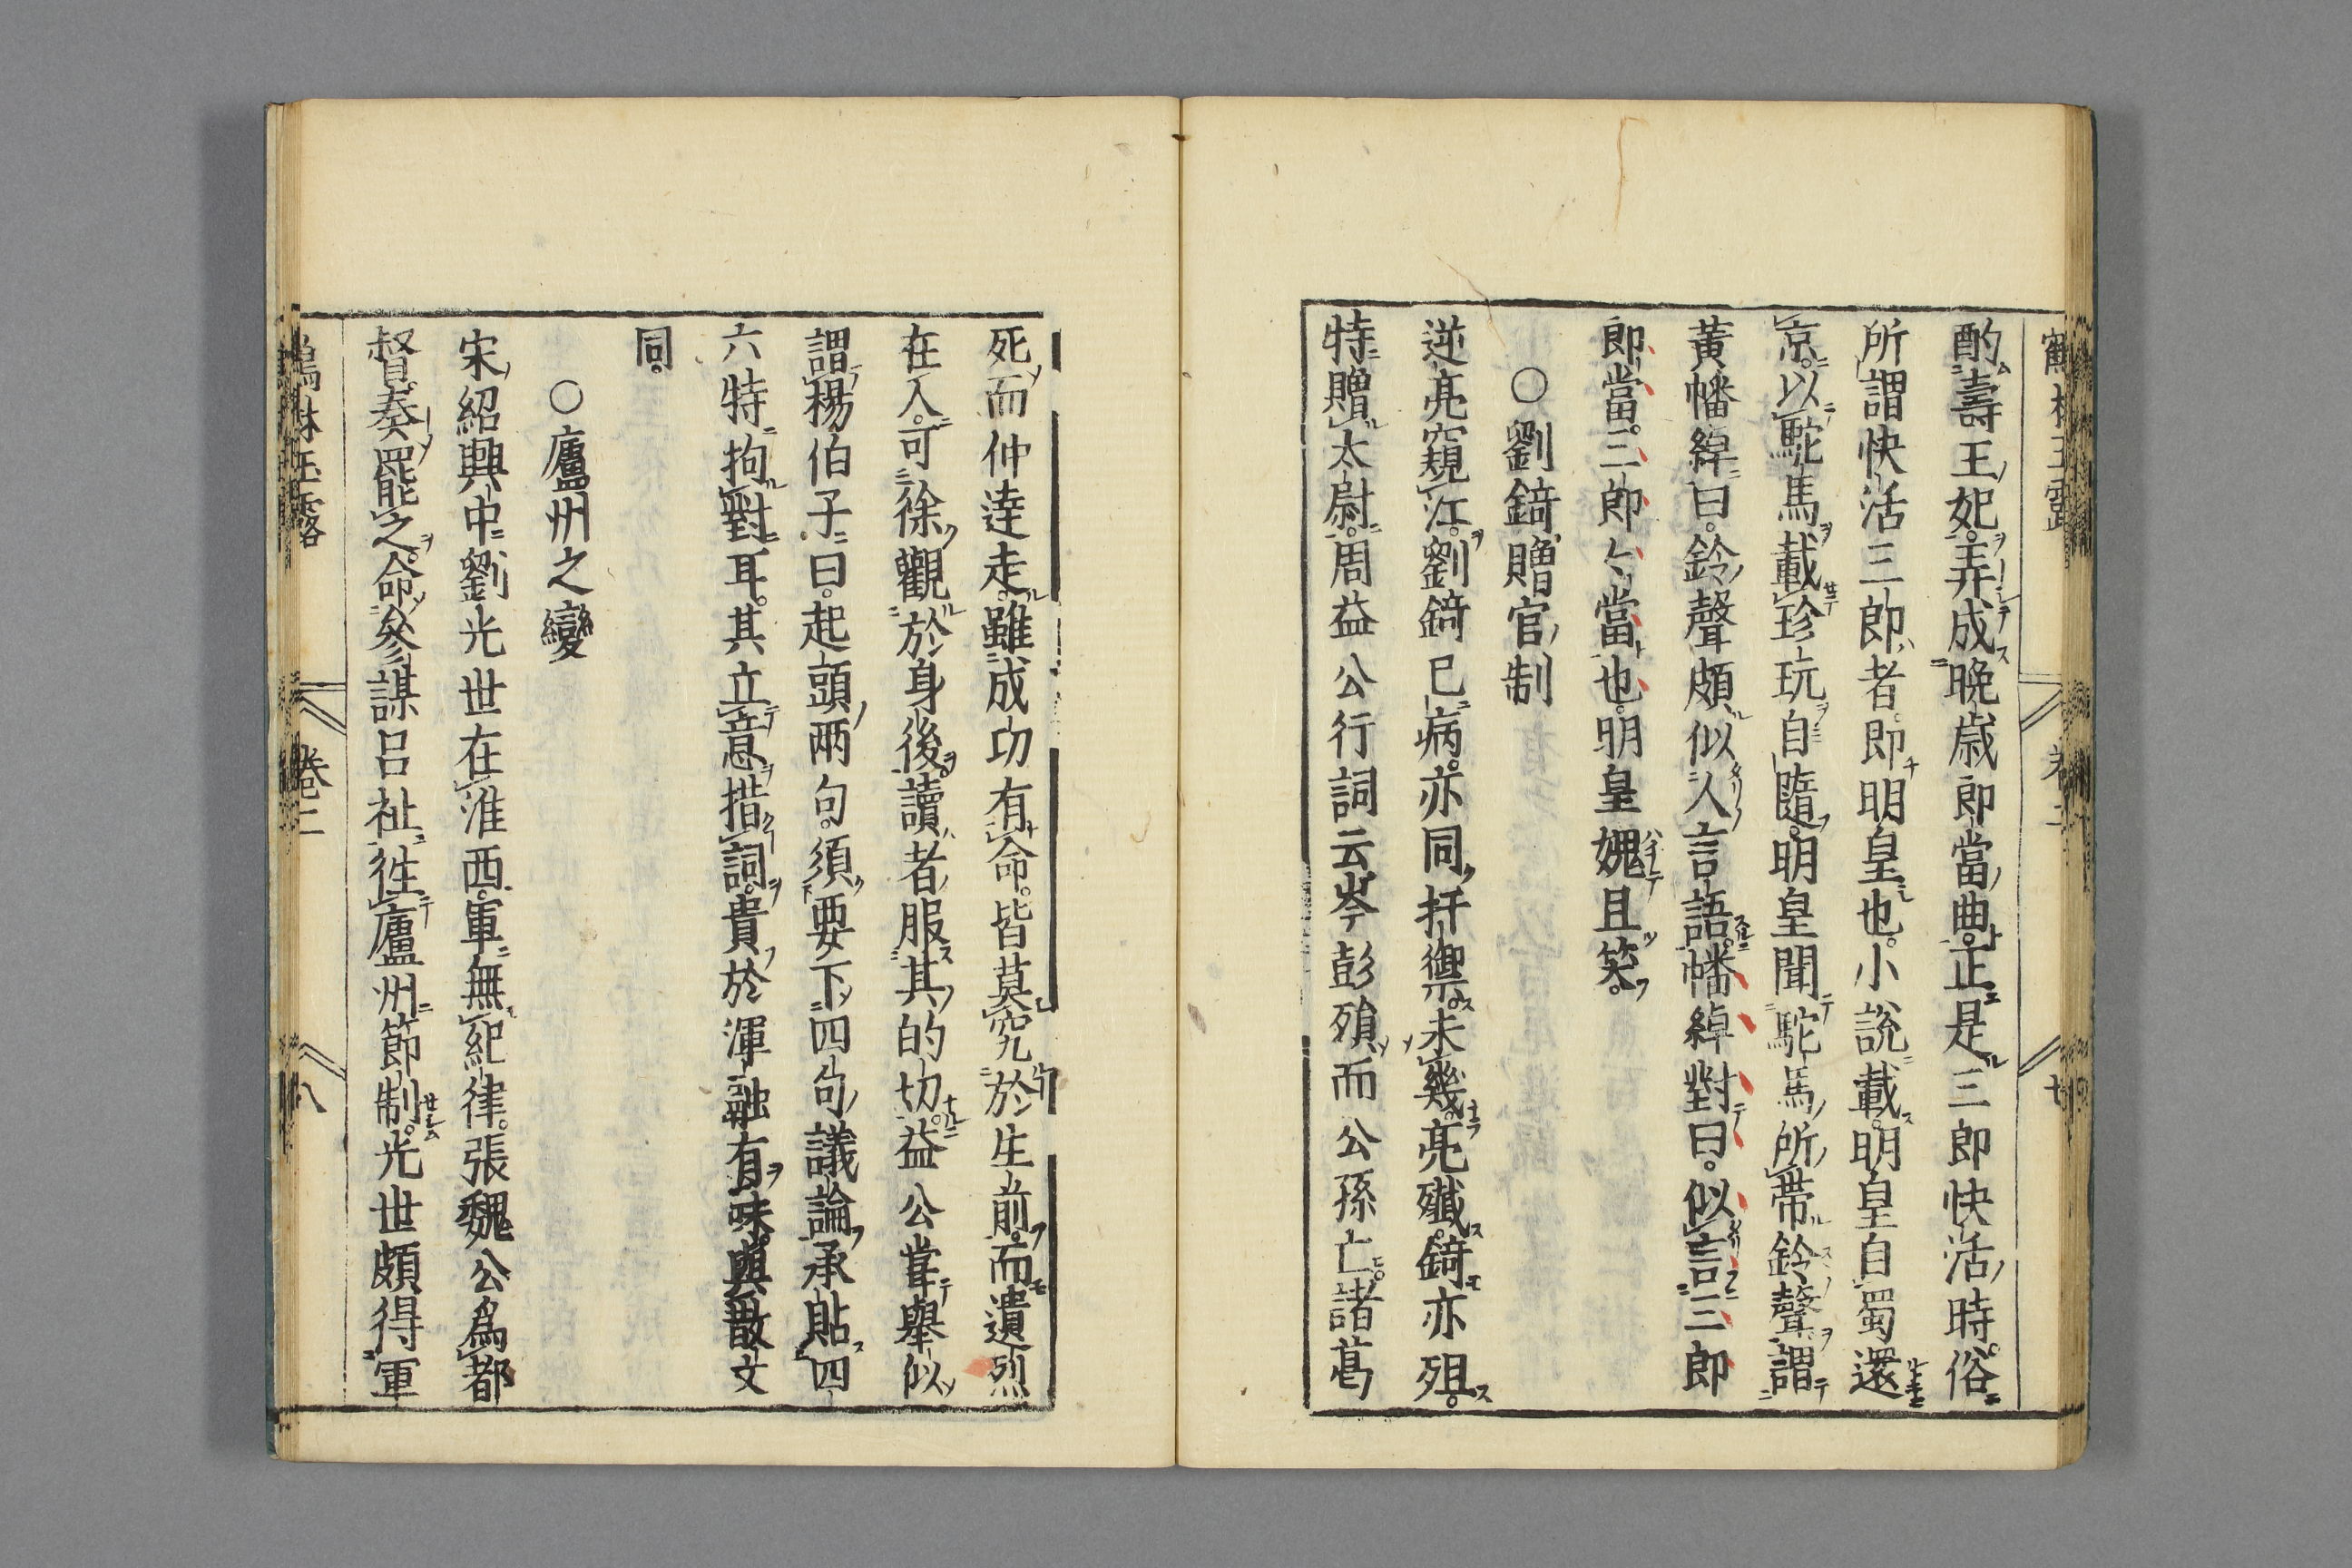 鶴林玉露
卷二
七
酌壽王妃。弄成晚歳郎當曲。正是三郎快活時。俗
所謂快活三郎者。即明皇也。小説載。明皇自蜀還
京。以駝馬載珍玩自隨。明皇聞駝馬所帶鈴聲。謂
黃幡綽曰。鈴聲頗似人言語。幡綽對曰。似言三郎
郎當。三郎々當也。明皇媿且笑。
○劉錡贈官制
逆亮窺江。劉錡已病。亦同扞禦。未幾。亮殱。錡亦殂。
特贈太尉。周益公行詞云岑彭殞而公孫亡。諸葛
死而仲達走。雖成功有命。皆莫究於生前。而遺烈
在人。可徐觀於身後。讀者服其的切。益公甞舉似
謂楊伯子曰。起頭兩句。須要下四句議論承貼。四
六特拘對耳。其立意措詞。貴於渾融有味。與散文
同。
○廬州之變
宋紹興中劉光世在淮西。軍無紀律。張魏公為都
督。奏罷之。命參謀呂祉往廬州節制。光世頗得軍
鶴林玉露
卷二
八